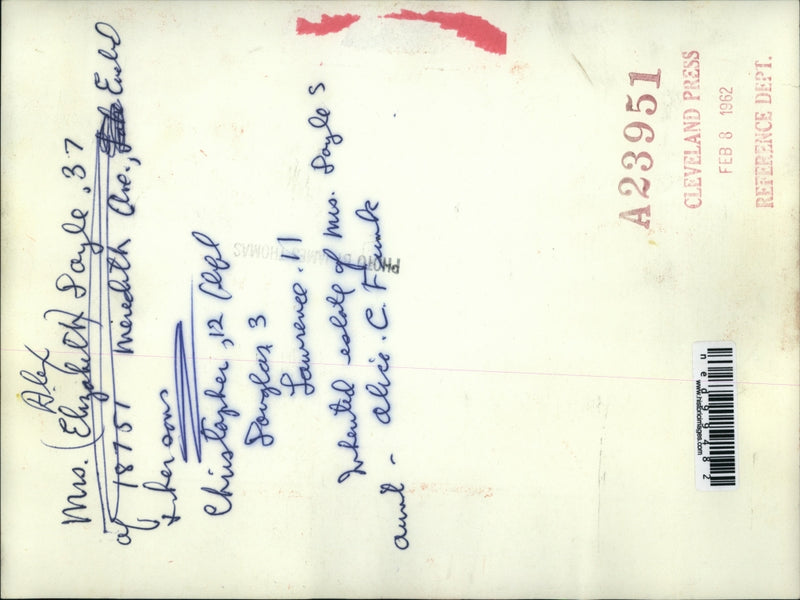 Alex
Mrs. (Elizabeth) Sayle, 37
of 18751 Meredith Ave., Euclid
& her sons
Christopher, 12
Douglas 3
Lawrence 11
Inherited estate of Mrs. Sayles
aunt - Alice C. Frank
PHOTO BY JAMES THOMAS
A23951
CLEVELAND PRESS
FEB 8 1962
REFERENCE DEPT.
www.historicimages.com